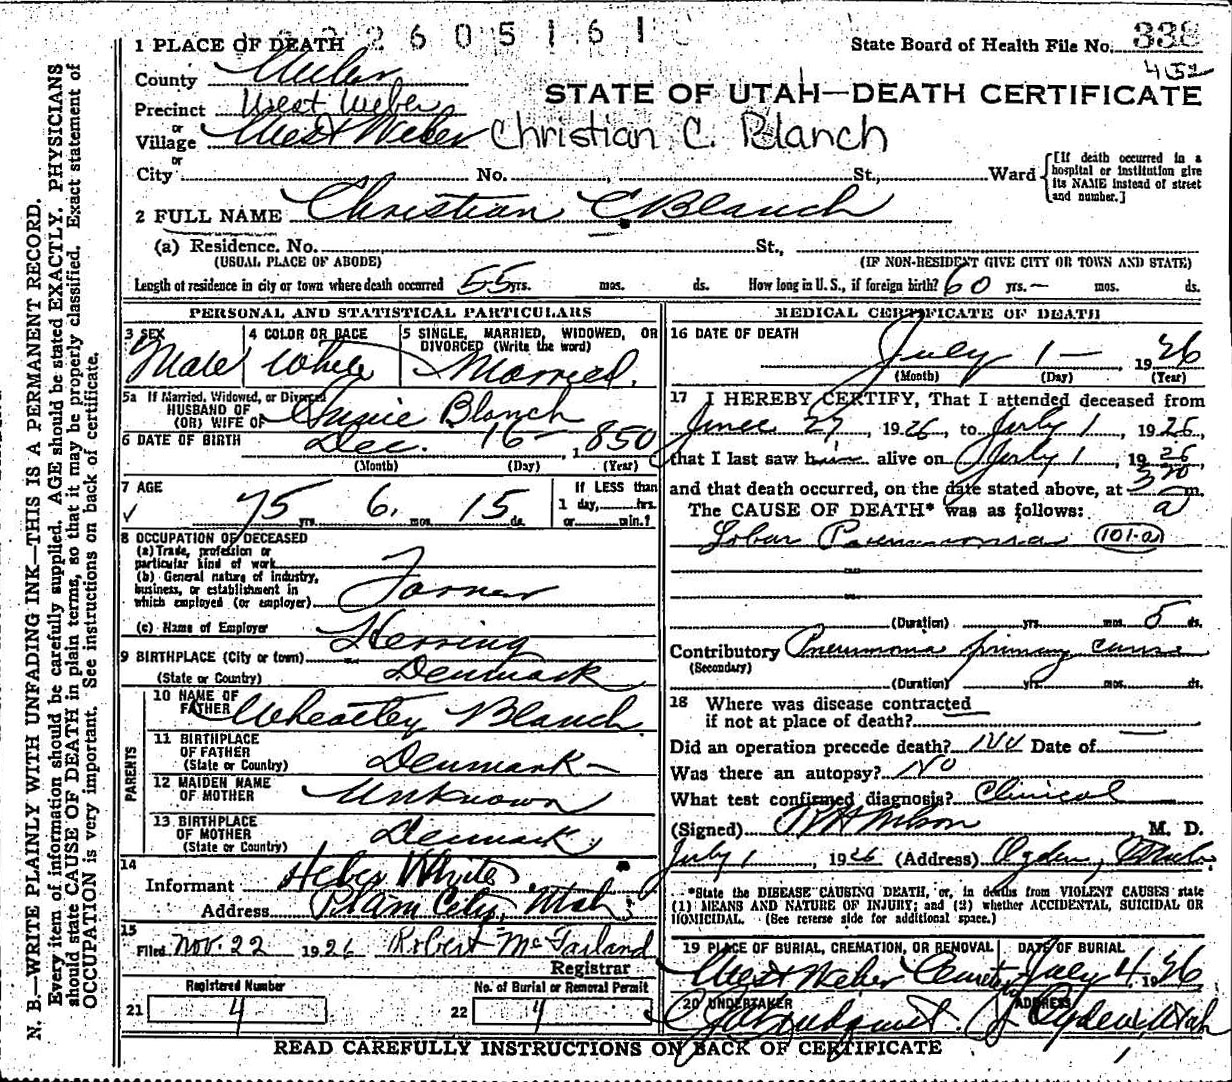 2605161
1 PLACE OF DEATH
State Board of Health File No. 338
452
County Weber
STATE OF UTAH—DEATH CERTIFICATE
Precinct West Weber
or
Village West Weber Christian C. Blanch
or
City No. , St., Ward [If death occurred in a hospital or institution give its NAME instead of street and number.]
2 FULL NAME Christian C Blanch
(a) Residence. No. St.,
(USUAL PLACE OF ABODE) (IF NON-RESIDENT GIVE CITY OR TOWN AND STATE)
Length of residence in city or town where death occurred 55 yrs. mos. ds. How long in U. S., if foreign birth? 60 yrs. — mos. ds.
PERSONAL AND STATISTICAL PARTICULARS
3 SEX Male
4 COLOR OR RACE White
5 SINGLE, MARRIED, WIDOWED, OR DIVORCED (Write the word) Married.
5a If Married, Widowed, or Divorced
HUSBAND OF
(OR) WIFE OF Blanch
6 DATE OF BIRTH Dec. 16 — 1850
(Month) (Day) (Year)
7 AGE 75 yrs. 6. mos. 15 ds.
If LESS than
1 day, hrs.
or min.?
8 OCCUPATION OF DECEASED
(a) Trade, profession or
particular kind of work
(b) General nature of industry,
business, or establishment in
which employed (or employer) Farmer
(c) Name of Employer
9 BIRTHPLACE (City or town) Herring
(State or Country) Denmark
PARENTS
10 NAME OF
FATHER Wheatley Blanch
11 BIRTHPLACE
OF FATHER
(State or Country) Denmark —
12 MAIDEN NAME
OF MOTHER Unknown
13 BIRTHPLACE
OF MOTHER
(State or Country) Denmark
14
Informant Heber White
Address Plain City, Utah
15
Filed Nov. 22 1926 Robert McFarland
Registrar
Registered Number
21 4
No. of Burial or Removal Permit
22 4
MEDICAL CERTIFICATE OF DEATH
16 DATE OF DEATH July 1 — 1926
(Month) (Day) (Year)
17 I HEREBY CERTIFY, That I attended deceased from
June 27, 1926, to July 1, 1926,
that I last saw him alive on July 1, 1926
and that death occurred, on the date stated above, at 3 20 a m.
The CAUSE OF DEATH* was as follows:
Lobar Pneumonia 101-a
(Duration) yrs. mos. 5 ds.
Contributory Pneumonia primary cause
(Secondary)
(Duration) yrs. mos. ds.
18 Where was disease contracted
if not at place of death?
Did an operation precede death? No Date of
Was there an autopsy? No
What test confirmed diagnosis? Clinical
(Signed) Wilson M. D.
July 1, 1926 (Address) Ogden, Utah.
*State the DISEASE CAUSING DEATH, or, in deaths from VIOLENT CAUSES state
(1) MEANS AND NATURE OF INJURY; and (2) whether ACCIDENTAL, SUICIDAL OR
HOMICIDAL. (See reverse side for additional space.)
19 PLACE OF BURIAL, CREMATION, OR REMOVAL DATE OF BURIAL
West Weber Cemetery July 4, 1926
20 UNDERTAKER ADDRESS
Lindquist. Ogden, Utah
READ CAREFULLY INSTRUCTIONS ON BACK OF CERTIFICATE
N. B.—WRITE PLAINLY WITH UNFADING INK—THIS IS A PERMANENT RECORD.
Every item of information should be carefully supplied. AGE should be stated EXACTLY. PHYSICIANS
should state CAUSE OF DEATH in plain terms, so that it may be properly classified. Exact statement of
OCCUPATION is very important. See instructions on back of certificate.